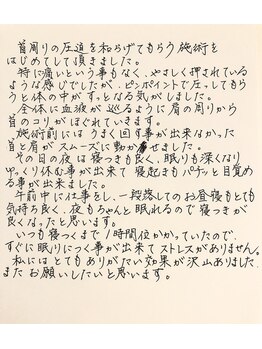 首周りの圧迫を和らげてもらう施術を
はじめてして頂きました。
特に痛いという事もなく、やさしく押されている
ような感じでしたが、ピンポイントで圧ってもら
うと体の中がすっとなる気がしました。
全体に血液が巡るように肩の周りから
首のコリがほぐれていきます。
施術前にはうまく回す事が出来なかった
首と肩がスムーズに動かせました。
その日の夜は寝つきも良く、眠りも深くなり
ゆっくり休む事が出来て寝起きもパチッと目覚め
る事が出来ました。
午前中に仕事をし、一段落してのお昼寝もとても
気持ち良く、夜もちゃんと眠れるので寝つきが
良くなったと思います。
いつも寝つくまで1時間位かかっていたので、
すぐに眠りにつく事が出来てストレスがありません。
私にはとてもありがたい効果が沢山ありました。
またお願いしたいと思います。